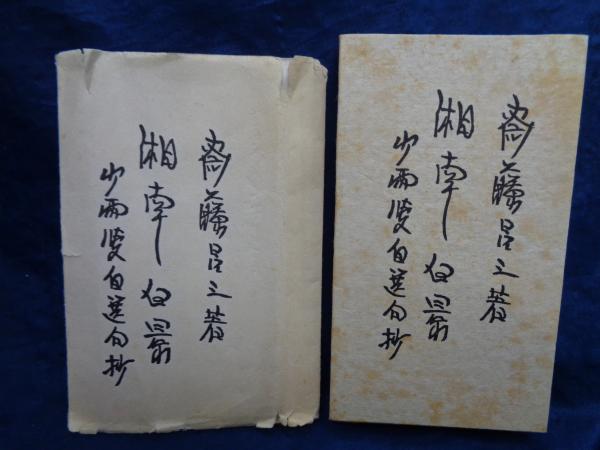 斎藤昌三著
湘南
少雨叟自選句抄
斎藤昌三著
湘南
少雨叟自選句抄